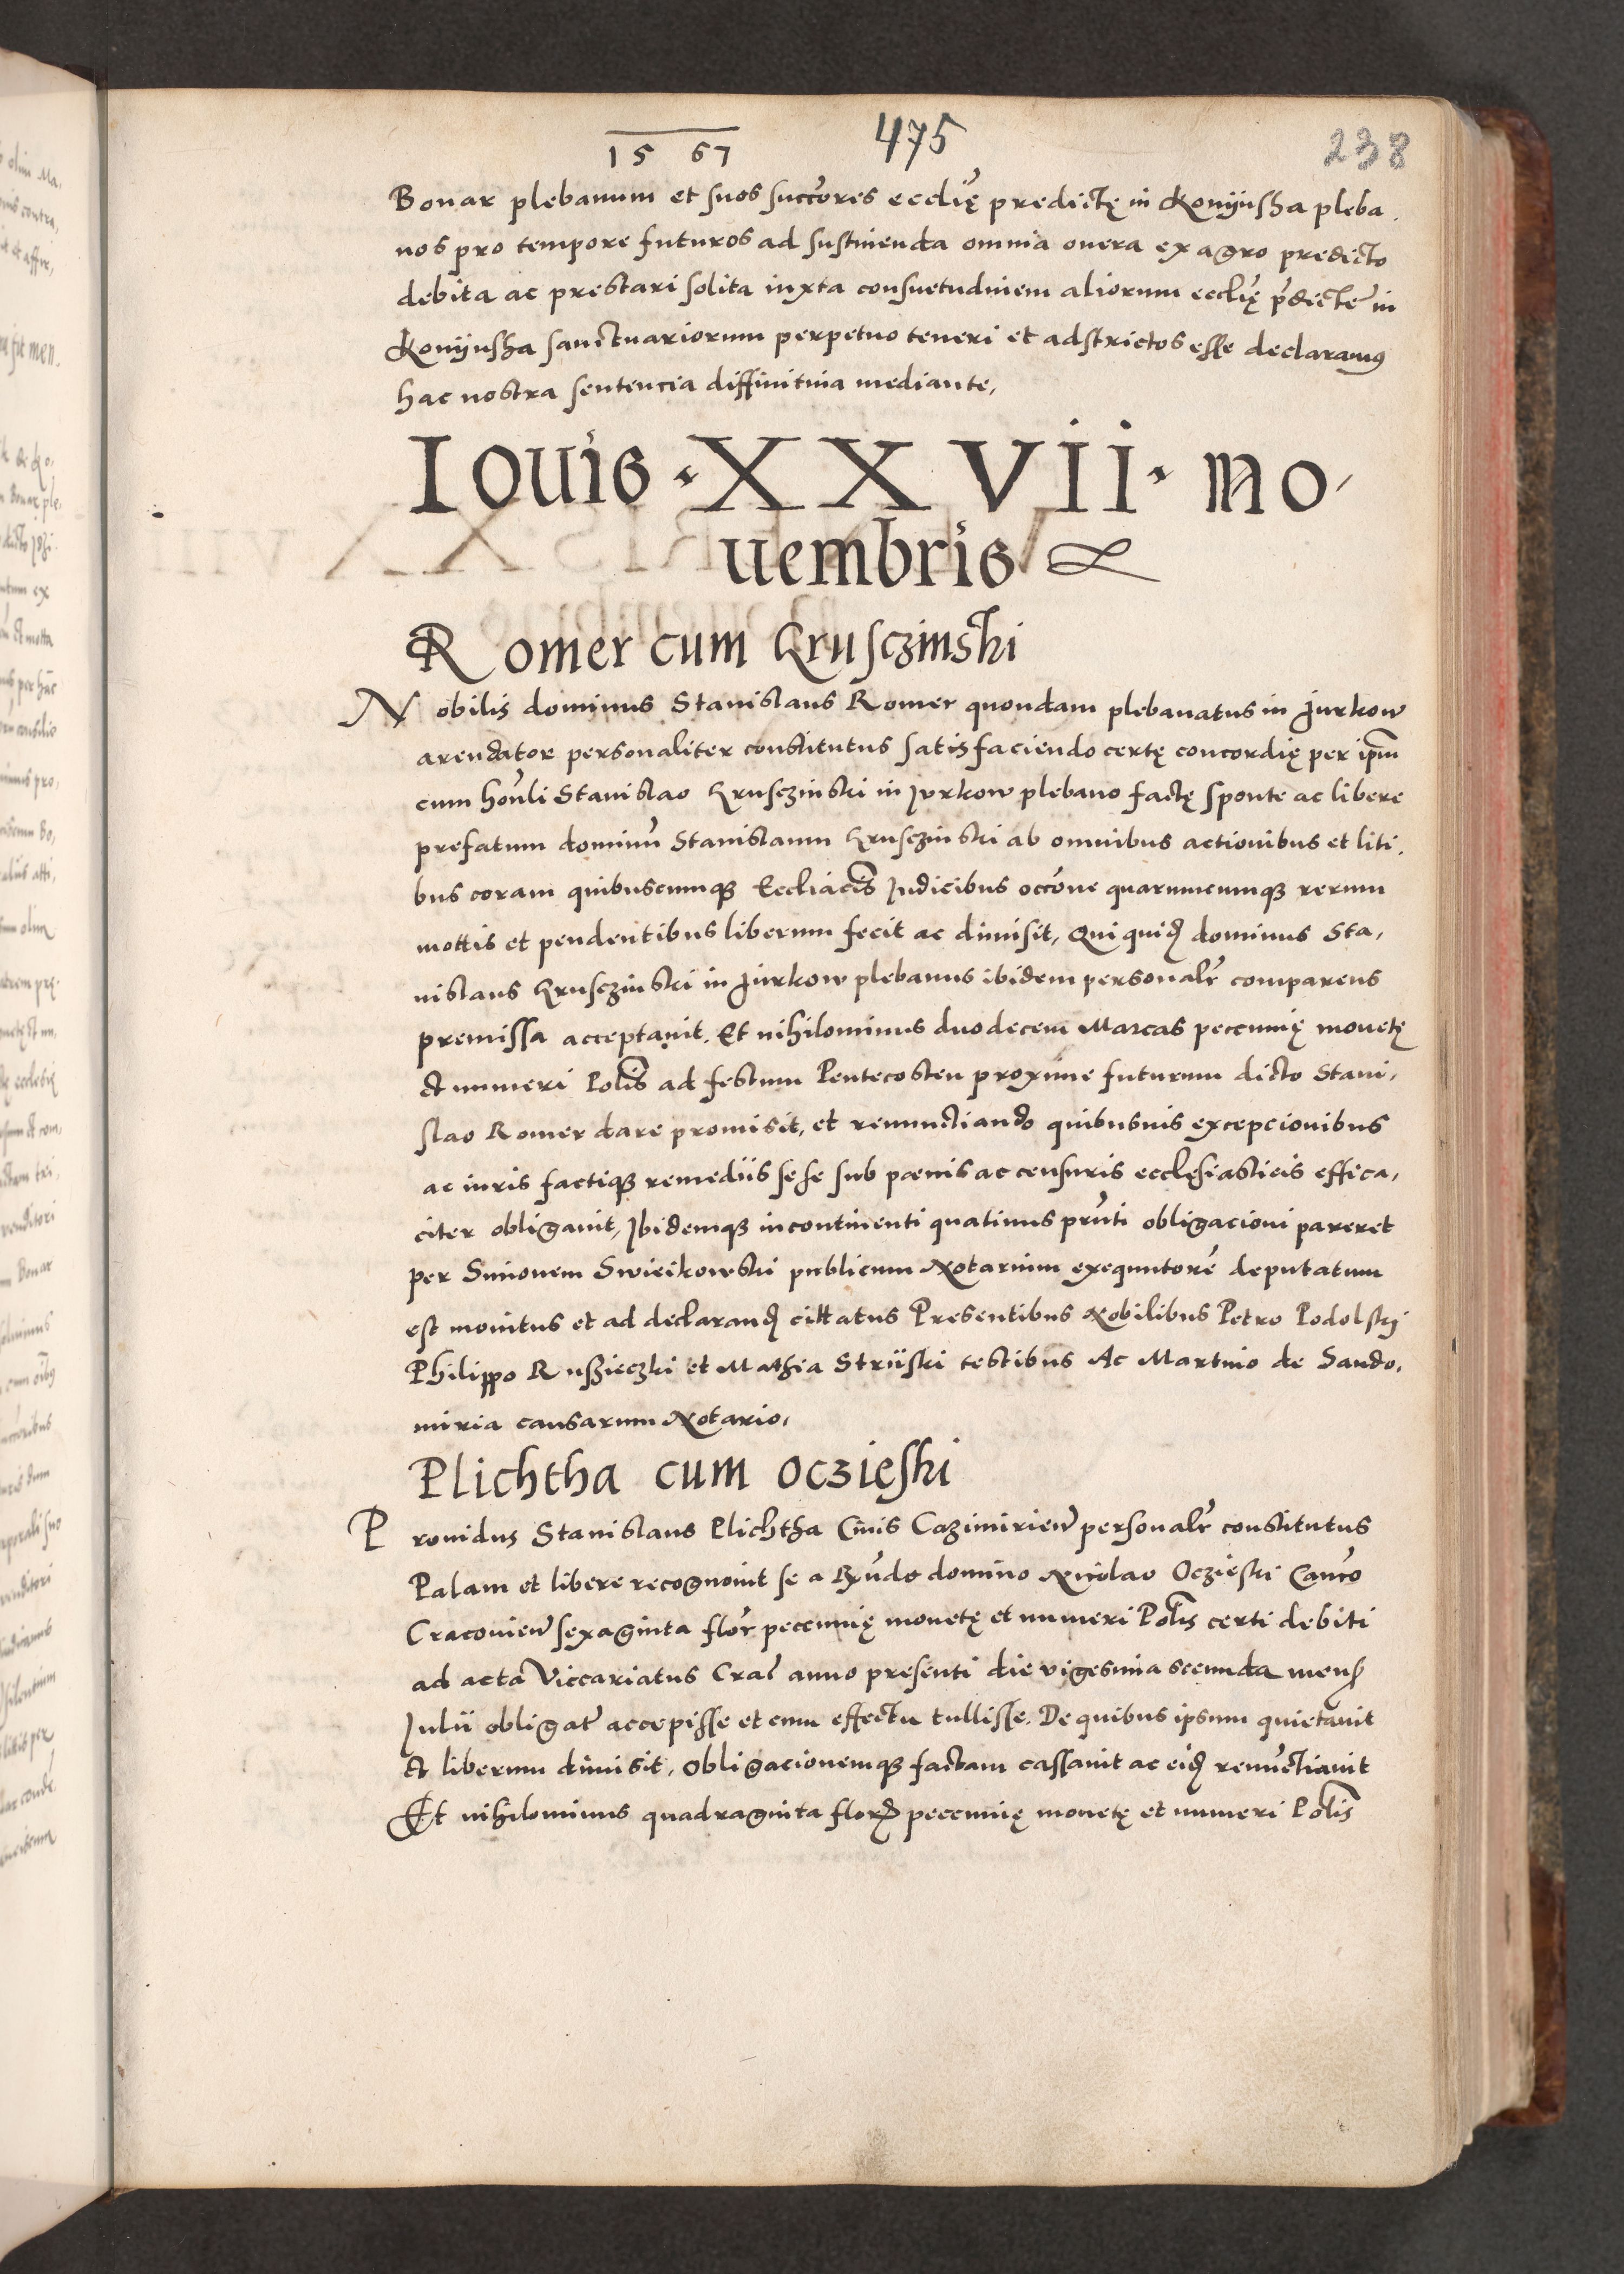 15 67
475
238
Bonar plebanum et suos succores ecclię predictę in Konijusha pleba,
nos pro tempore futuros ad sustinenda omnia onera ex agro predicto
debita ac prestari solita iuxta consuetudinem aliorum ecclię pdicte in
Konijusha sanctuariorum perpetuo teneri et adstrictos esse declaramus
hac nostra sentencia diffinitiva mediante,
Iouis · XXVII · no,
uembris
Romer cum Krusczinski
Nobilis dominus Stanislaus Romer quondam plebanatus in Jurkow
arendator personaliter constitutus satisfaciendo certę concordię per ipm
cum honli Stanislao Krusczinski in Jurkow plebano factę sponte ac libere
prefatum dominu Stanislaum Krusczinski ab omnibus actionibus et liti,
bus coram quibuscumque Eccliacis Judicibus occone quarumcumque rerum
mottis et pendentibus liberum fecit ac dimisit, Qui quid dominus Sta,
nislaus Krusczinski in Jurkow plebanus ibidem personalr comparens
premissa acceptauit. Et nihilominus duodecem Marcas peccunię monetę
et numeri Polis ad festum Pentecosten proxime futurum dicto Stani,
slao Romer dare promisit, et renunctiando quibusuis excepcionibus
ac iuris factique remediis sese sub pœnis ac censuris ecclęsiasticis effica,
citer obligauit, Ibidemque incontinenti quatinus prnti obligacioni pareret
per Simonem Swieikowski publicum Notarium exequutore deputatum
est monitus et ad declarand cittatus Presentibus Nobilibus Petro Podolskj
Philippo Ruszieczki et Mathia Strijski testibus Ac Martino de Sando,
miria causarum Notario,
Plichtha cum Oczieski
Prouidus Stanislaus Plichtha Ciuis Cazimirien personalr constitutus
Palam et libere recognouit se a Rndo domino Nicolao Oczieski Canco
Cracouien sexaginta flor peccunię monetę et numeri Polis certi debiti
ad acta Viccariatus Crac anno presenti die vigesima secunda mens
Julii obligat accepisse et cum effectu tullisse. De quibus ipsum quietauit
et liberum dimisit, obligacionemque factam cassauit ac eid renuctiauit
Et nihilominus quadraginta flor peccunię monetę et numeri Polis